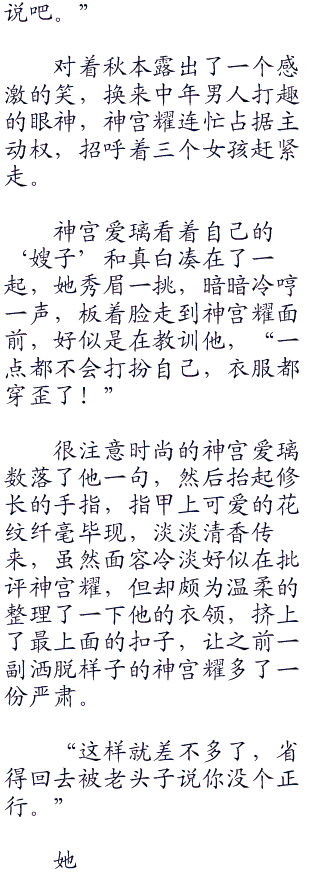 说吧。”
对着秋本露出了一个感
激的笑，换来中年男人打趣
的眼神，神宫耀连忙占据主
动权，招呼着三个女孩赶紧
走。
神宫爱璃看着自己的
‘嫂子’和真白凑在了一
起，她秀眉一挑，暗暗冷哼
一声，板着脸走到神宫耀面
前，好似是在教训他，“一
点都不会打扮自己，衣服都
穿歪了！”
很注意时尚的神宫爱璃
数落了他一句，然后抬起修
长的手指，指甲上可爱的花
纹纤毫毕现，淡淡清香传
来，虽然面容冷淡好似在批
评神宫耀，但却颇为温柔的
整理了一下他的衣领，挤上
了最上面的扣子，让之前一
副洒脱样子的神宫耀多了一
份严肃。
“这样就差不多了，省
得回去被老头子说你没个正
行。”
她